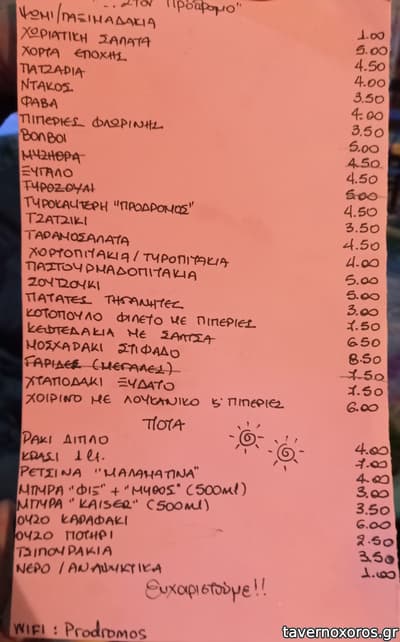 ...στον "Πρόδρομο"
ΨΩΜΙ/ΠΑΞΙΜΑΔΑΚΙΑ 1.00
ΧΩΡΙΑΤΙΚΗ ΣΑΛΑΤΑ 5.00
ΧΟΡΤΑ ΕΠΟΧΗΣ 4.50
ΠΑΤΖΑΡΙΑ 4.00
ΝΤΑΚΟΣ 3.50
ΦΑΒΑ 4.00
ΠΙΠΕΡΙΕΣ ΦΛΩΡΙΝΗΣ 3.50
ΒΟΛΒΟΙ 5.00
ΜΥΖΗΘΡΑ 4.50
ΞΥΓΑΛΟ 4.50
ΤΥΡΟΖΟΥΛΙ 5.00
ΤΥΡΟΚΑΥΤΕΡΗ "ΠΡΟΔΡΟΜΟΣ" 4.50
ΤΖΑΤΖΙΚΙ 3.50
ΤΑΡΑΜΟΣΑΛΑΤΑ 4.50
ΧΟΡΤΟΠΙΤΑΚΙΑ/ΤΥΡΟΠΙΤΑΚΙΑ 4.00
ΠΑΣΤΟΥΡΜΑΔΟΠΙΤΑΚΙΑ 5.00
ΣΟΥΤΖΟΥΚΙ 5.00
ΠΑΤΑΤΕΣ ΤΗΓΑΝΗΤΕΣ 3.00
ΚΟΤΟΠΟΥΛΟ ΦΙΛΕΤΟ ΜΕ ΠΙΠΕΡΙΕΣ 7.50
ΚΕΦΤΕΔΑΚΙΑ ΜΕ ΣΑΛΤΣΑ 6.50
ΜΟΣΧΑΡΑΚΙ ΣΤΙΦΑΔΟ 8.50
ΓΑΡΙΔΕΣ (ΜΕΓΑΛΕΣ) 7.50
ΧΤΑΠΟΔΑΚΙ ΞΥΔΑΤΟ 7.50
ΧΟΙΡΙΝΟ ΜΕ ΛΟΥΚΑΝΙΚΟ & ΠΙΠΕΡΙΕΣ 6.00
ΠΟΤΑ
ΡΑΚΙ ΔΙΠΛΟ 4.00
ΚΡΑΣΙ 1 lt. 7.00
ΡΕΤΣΙΝΑ "ΜΑΛΑΜΑΤΙΝΑ" 4.00
ΜΠΥΡΑ "ΦΙΞ" + "ΜΥΘΟΣ" (500ml) 3.00
ΜΠΥΡΑ "KAISER" (500ml) 3.50
ΟΥΖΟ ΚΑΡΑΦΑΚΙ 6.00
ΟΥΖΟ ΠΟΤΗΡΙ 2.50
ΤΣΙΠΟΥΡΑΚΙΑ 3.50
ΝΕΡΟ/ΑΝΑΨΥΚΤΙΚΑ 1.00
Ευχαριστούμε!!
WIFI : Prodromos
www.tavernoxoros.gr